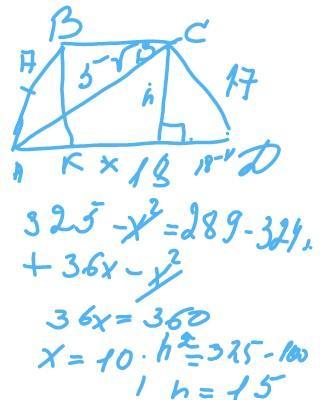 B C
5√13
17
h
A K x 18 18-x D
325 - x² = 289 - 324
+ 36x - x²
36x = 360
x = 10 . h² = 325 - 100
h = 15